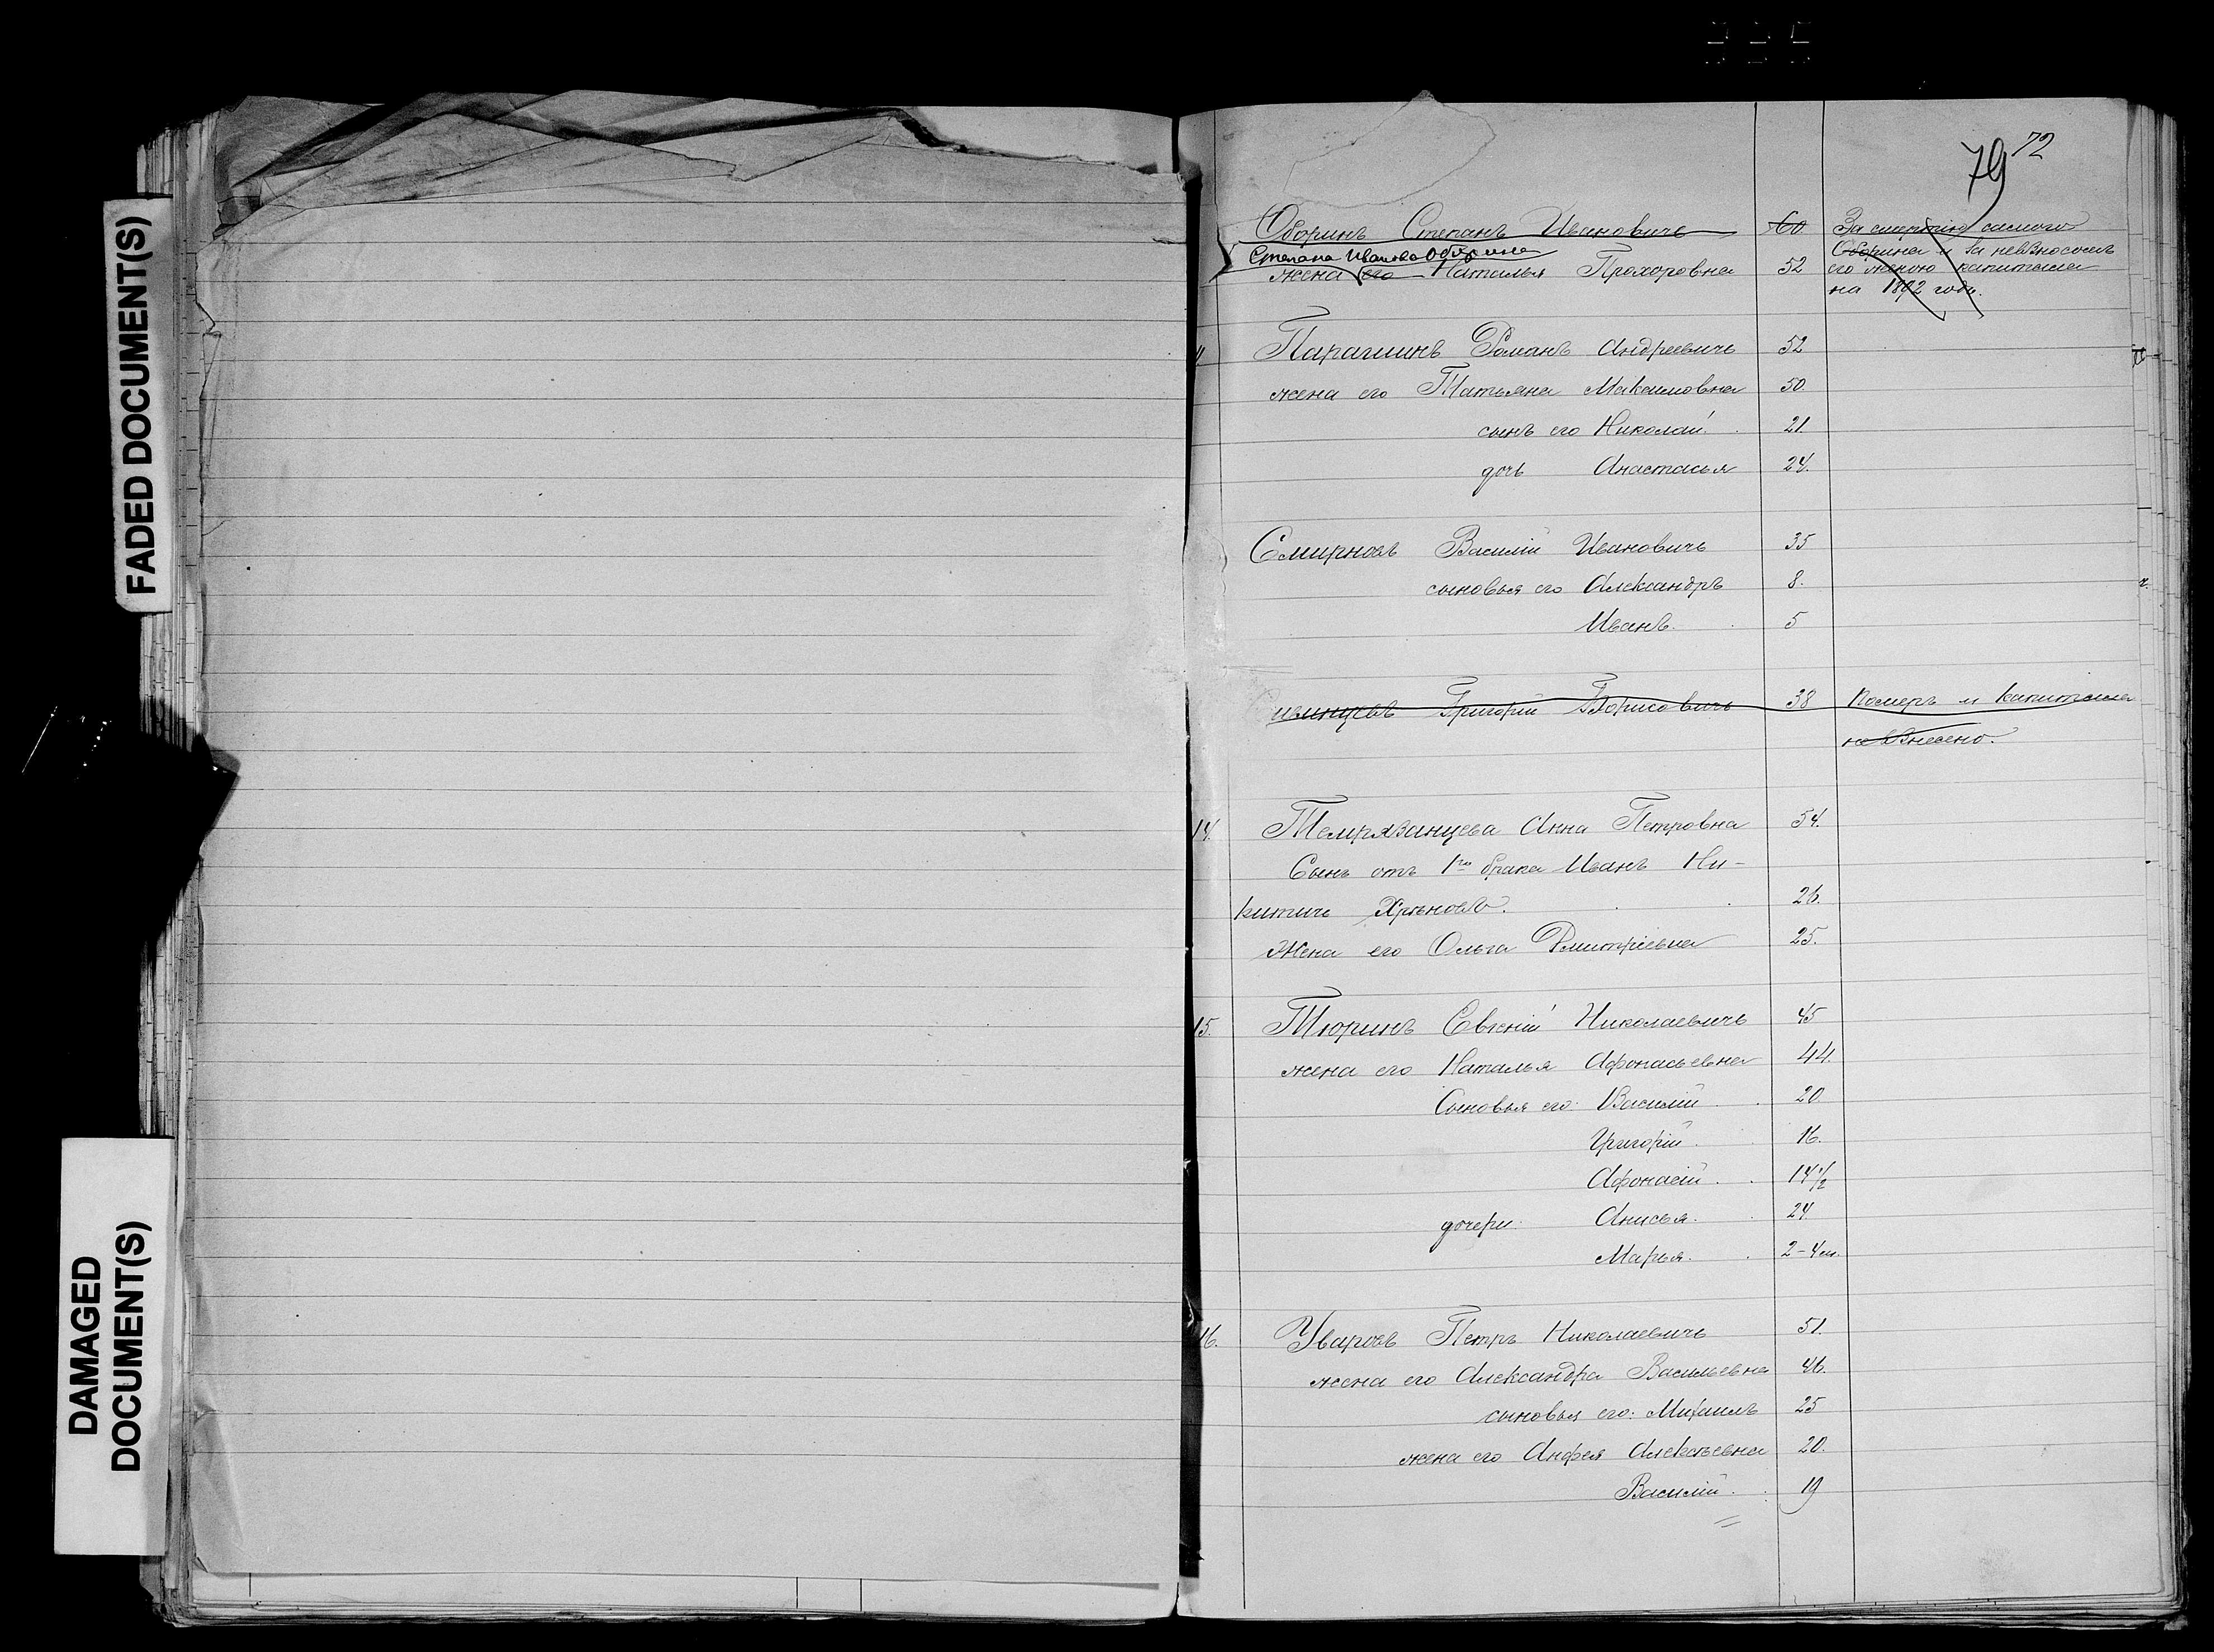 FADED DOCUMENT(S)
DAMAGED
DOCUMENT(S)
79 72
Оборинъ Степанъ Ивановичъ 60 За смертію самого
Степана Иванова Оборина Оборина и за невзносомъ
жена его Наталья Прохоровна 52 его женою капитала
на 1892 годъ.
Парашинъ Романъ Андреевичъ 52
жена его Татьяна Максимовна 50.
сынъ его Николай. 21.
дочь Анастасья 24.
Смирновъ Василій Ивановичъ 35
сыновья его Александръ 8.
Иванъ. 5
Григорій Борисовичъ 38 померъ и капитала
не внесено.
14. Темрязанцева Анна Петровна 54.
Сынъ отъ 1го брака Иванъ Ни-
китичъ Хрѣновъ. 26.
Жена его Ольга Дмитріевна 25.
15. Тюринъ Евгеній Николаевичъ 45
жена его Наталья Афонасьевна 44.
Сыновья его: Василій 20
Григорій. 16.
Афонасій. 14 1/2
дочери: Анисья. 24
Марья. 2-4 м.
16. Уваровъ Петръ Николаевичъ 51.
жена его Александра Васильевна 46.
сыновья его: Михаилъ 25
жена его Анфея Алексѣевна 20.
Василій. 19